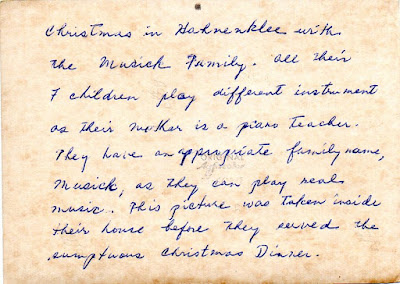 Christmas in Hahnenklee with
the Musick Family. All their
7 children play different instrument
as their mother is a piano teacher.
They have an appropriate family name,
Musick, as they can play real
music. This picture was taken inside
their house before they served the
sumptuous Christmas Dinner.